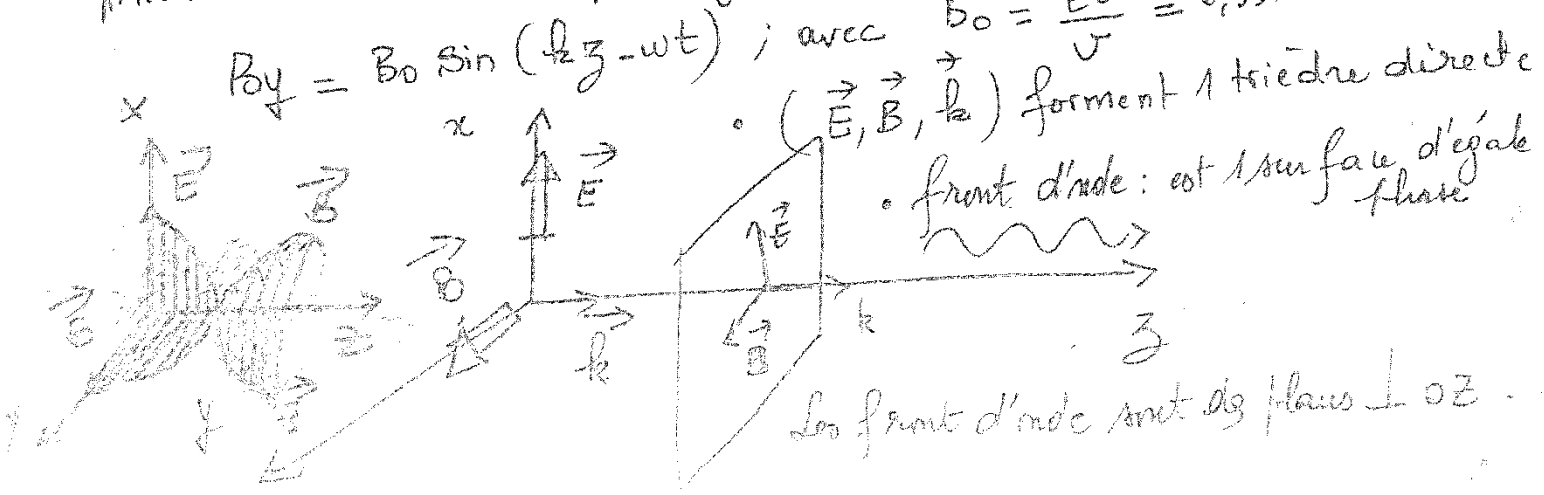 By = B₀ sin (kz - ωt) ; avec B₀ = E₀/v =
• (E⃗, B⃗, k⃗) forment 1 trièdre directe
• front d'onde : est 1 surface d'égale
phase
X
x
E⃗
B⃗
E⃗
E⃗
B⃗
B⃗
z
k⃗
B⃗
k
z
y
y
Les front d'onde sont des plans ⊥ OZ .